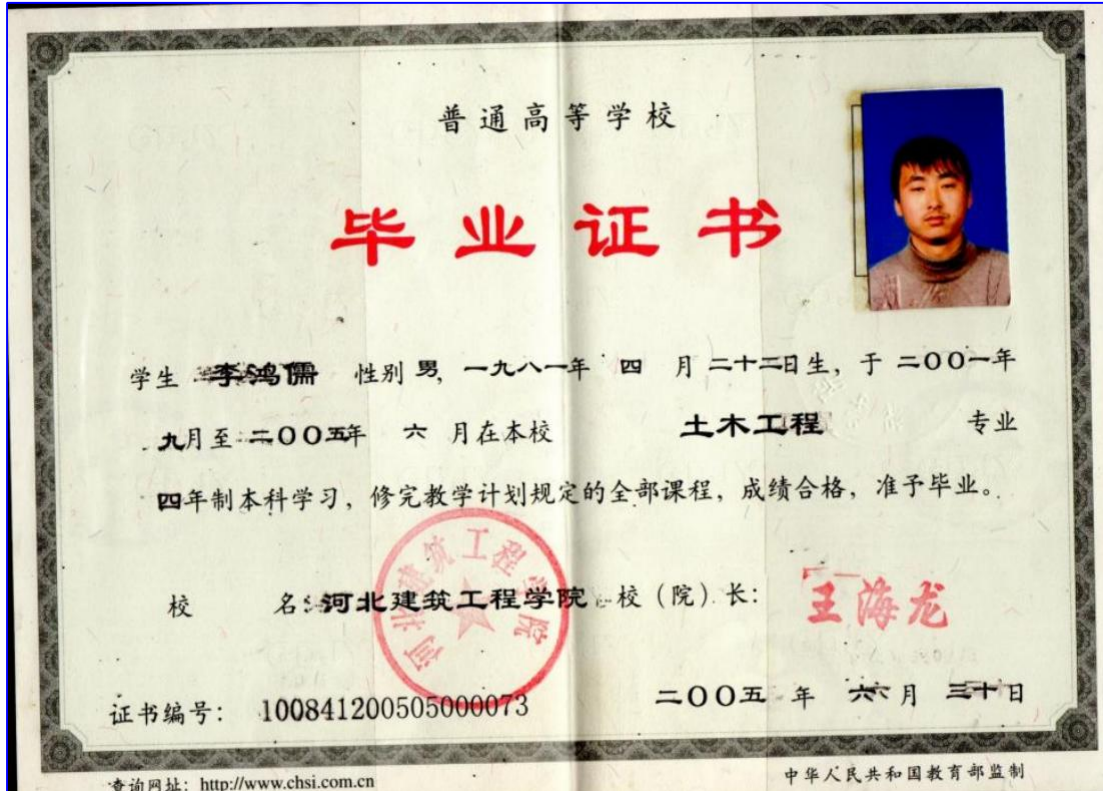 普通高等学校
毕业证书
学生 李鸿儒 性别 男, 一九八一年 四 月 二十二日生, 于 二00一年
九月至 二00五年 六 月在本校 土木工程 专业
四年制本科学习, 修完教学计划规定的全部课程, 成绩合格, 准予毕业。
校 名: 河北建筑工程学院 校(院)长: 王海龙
河北建筑工程学院
证书编号: 100841200505000073 二00五 年 六月 三十日
查询网址: http://www.chsi.com.cn 中华人民共和国教育部监制